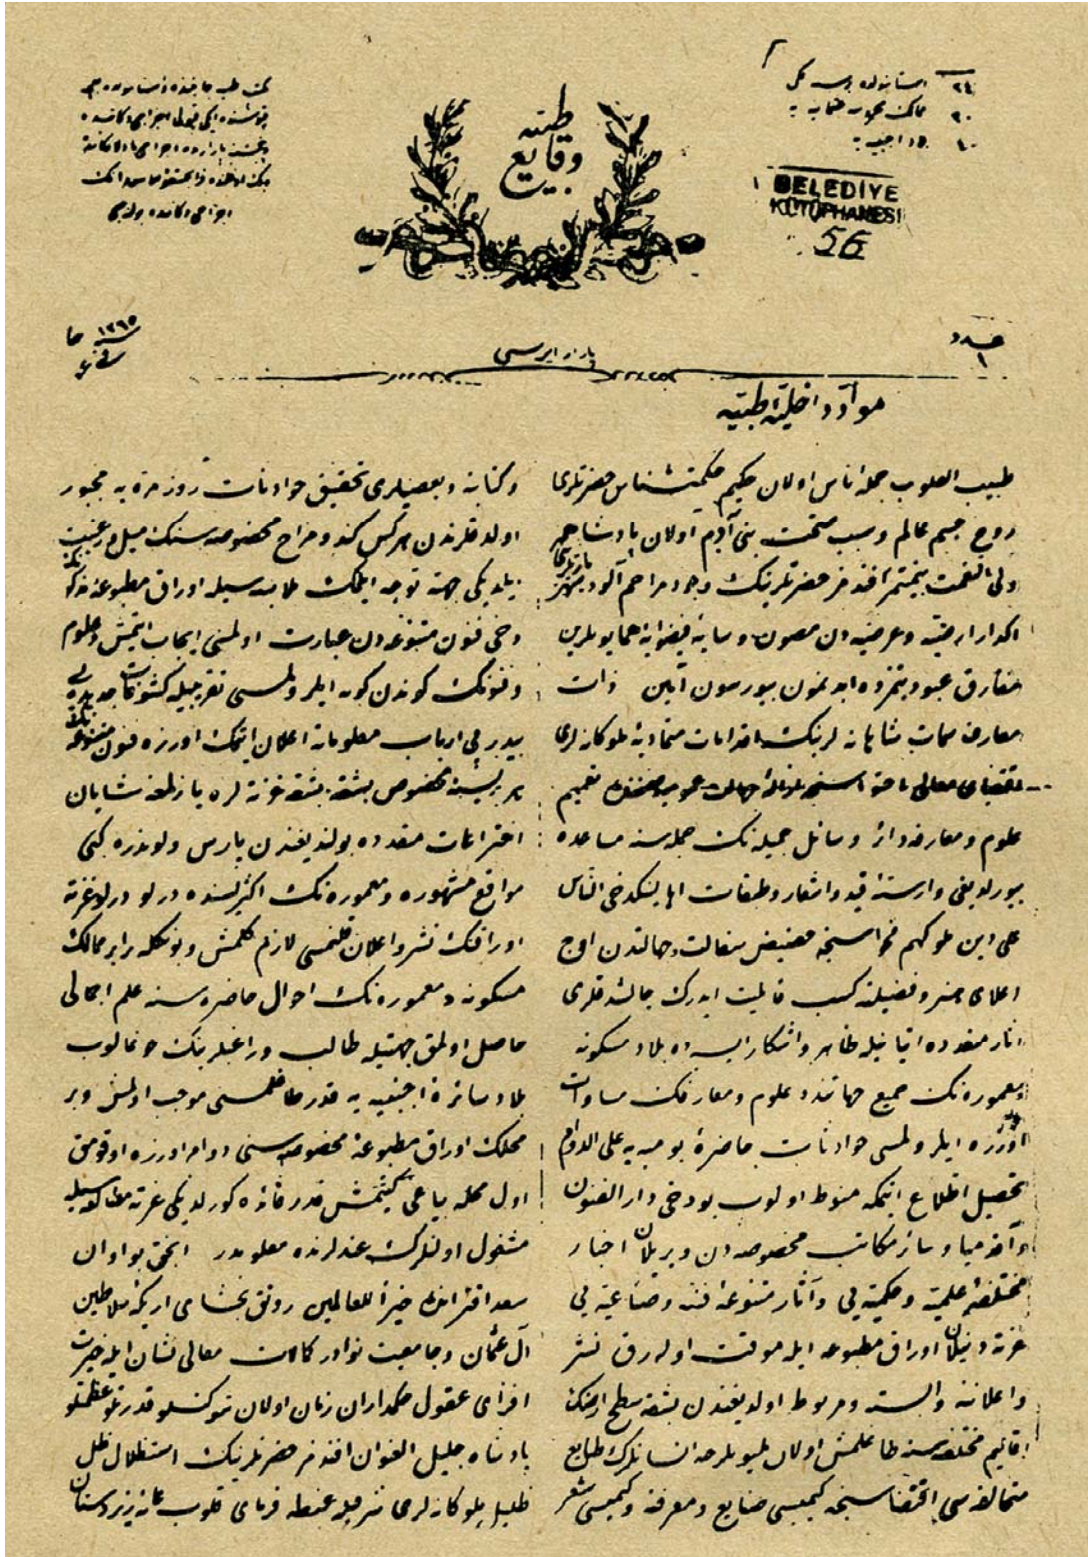 وقايع
طبيه
BELEDİYE
KÜTÜPHANESİ
56
عدد
١
بازار ايرتسى
سنه ١٢٦٥
مواد داخليهٔ طبيه
طبيب القلوب جملهٔ ناس اولان حكيم حكمتشناس حضرتلرى
روح جسم عالم و سبب صحت بنى آدم اولان پادشاه
ولى النعمت بيمنتمز افندمز حضرتلرينك وجود مراحم آلود
اكدار ارضيه و عرضيه دن مصون و سايهٔ همايونلرين
مفارق عبوديتمزده ابد نمون بيورسون آمين ذات
معارف سمات شاهانه لرينك اقدامات متماديهٔ ملوكانه لرى
علوم و معارفه دائر وسائل جميله نك جمله سنه مساعده
بيورلديغى وارستهٔ قيد و اشعار و طبقات اهالينك دخى الناس
على دين ملوكهم فحواسنجه حضيض سفالت و جهالتدن اوج
اعلاى هنر و فضيلته كسب قابليت ايدرك چالشدقلرى
آثار متعدده اتيانيله ظاهر و آشكار ايسه ده بلاد مسكونه
و معموره نك جميع جهاتنده علوم و معارفك مساوات
اوزره ايلرولمسى حوادثات حاضرهٔ يوميه يه على الدوام
تحصيل اطلاع ايتمكه منوط اولوب بو دخى دار الفنون
و آقدميا و سائر مكاتب مخصوصه دن ويريلان اخبار
مختلفهٔ علميه و حكميه يى و آثار متنوعهٔ فنيه و صناعيه يى
غزته دينيلان اوراق مطبوعه ايله موقت اوله رق نشر
و اعلاننه وابسته و مربوط اولديغندن بشقه سطح ارضك
اقاليم مختلفه سنه طاغلمش اولان مليونلرجه انسانلرك طبايع
متخالفه سى اقتضاسنجه كيميسى صنايع و معرفته و كيميسى شعر
و كتابته و بعضيلرى تحقيق حوادثات روزمره يه مجبور
اولدقلرندن هركس كندو مزاج مخصوصه سنك ميل و رغبت
ايلديكى جهته توجه ايلمك ملابسه سيله اوراق مطبوعهٔ مذكوره نك
دخى فنون متنوعه دن عبارت اولمسى ايجاب ايتمش و علوم
و فنونك كوندن كونه ايلرولمسى تقريبيله كشفيات جديده يى
پيدرپى ارباب معلوماته اعلان ايتمك اوزره فنون متنوعه نك
هر بريسنه مخصوص بشقه بشقه غزته لره يازلمغه شايان
اختراعات متعدده بولنديغندن پارس و لوندره كبى
مواقع مشهوره و معموره نك اكثريسنده درلو درلو غزته
اوراقنك نشر و اعلان قلنمسى لازم كلمش و بونكله برابر ممالك
مسكونه و معموره نك احوال حاضره سنه علم اجمالى
حاصل اولمق جهتيله طالب و راغبلرينك چوغالوب
بلاد سائرهٔ اجنبيه يه قدر طاغلمسنى موجب اولمش و بر
محلك اوراق مطبوعهٔ مخصوصه سنى دوام اوزره اوقومق
اول محله بياغى كيتمش قدر فائده كورلديكى غزته مطالعه سيله
مشغول اولنلرك عندلرنده معلومدر انجق بو اوان
سعد اقترانده خير للعالمين رونق بخشاى اريكهٔ سلاطين
آل عثمان و جامعيت نوادر كمالات معالى نشان ايله حيرت
افزاى عقول حكمداران زمان اولان شوكتلو قدرتلو عظمتلو
پادشاه جليل العنوان افندمز حضرتلرينك استظلال ظل
ظليل ملوكانه لرى